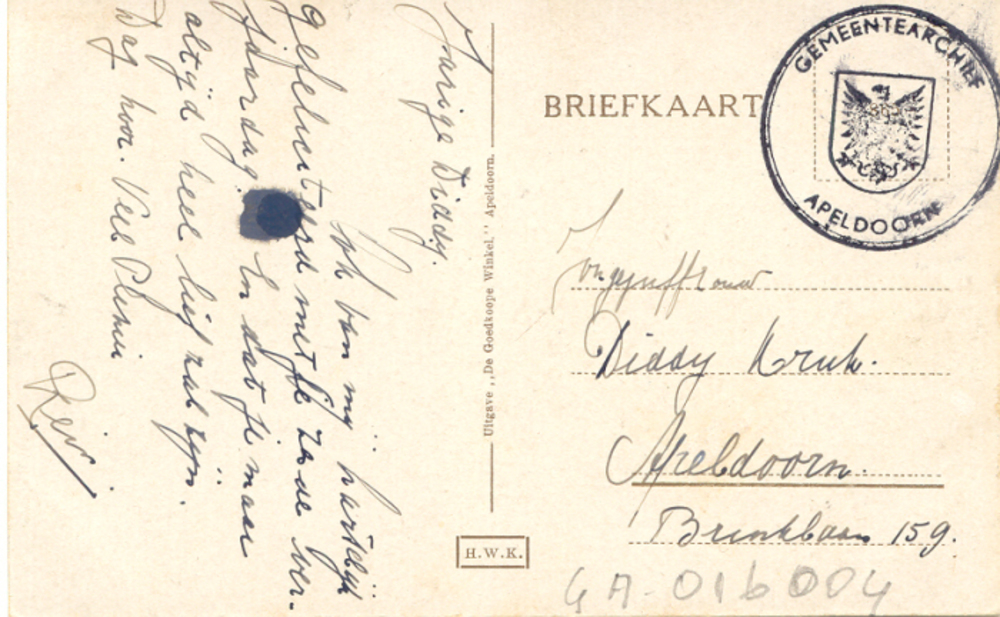 Jarige Diddy.
Ik ben mij hartelijk
gefeliciteerd met je 2e ver-
jaardag. En dat je maar
altijd heel lief zal zijn.
Dag hoor. Veel Plezier
Uitgave „De Goedkoope Winkel." Apeldoorn.
BRIEFKAART
GEMEENTEARCHIEF
APELDOORN
Jongejuffrouw
Diddy Kruk.
Apeldoorn.
Brinklaan 159.
H.W.K.
GA-016004